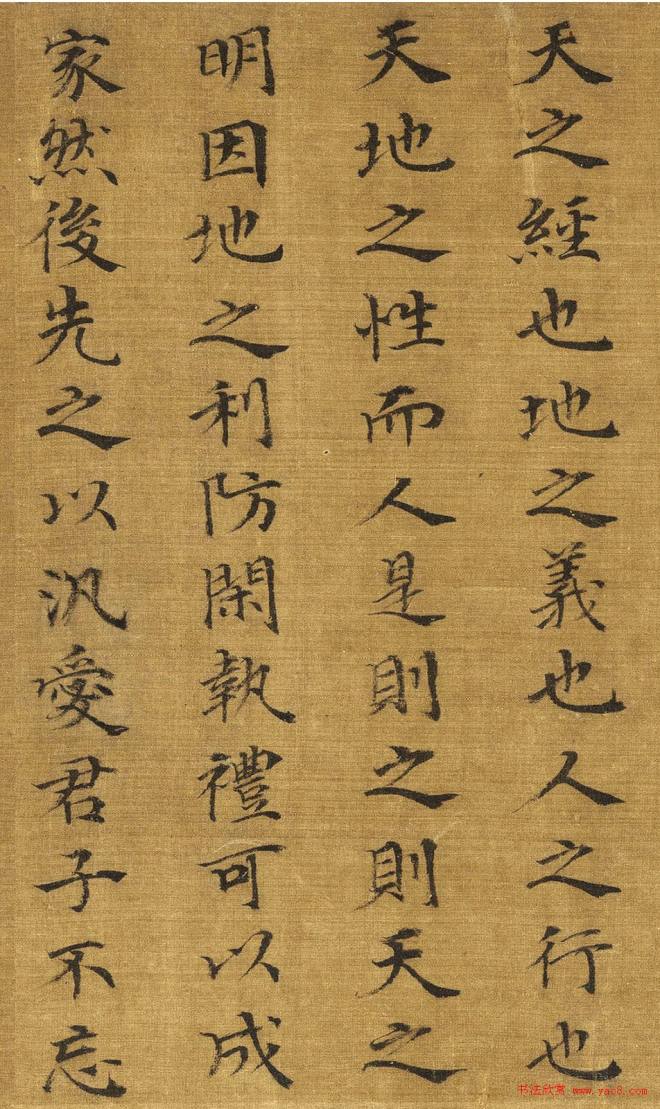 天之經也地之義也人之行也
天地之性而人是則之則天之
明因地之利防閑執禮可以成
家然後先之以汎愛君子不忘
书法欣赏 www.yac8.com